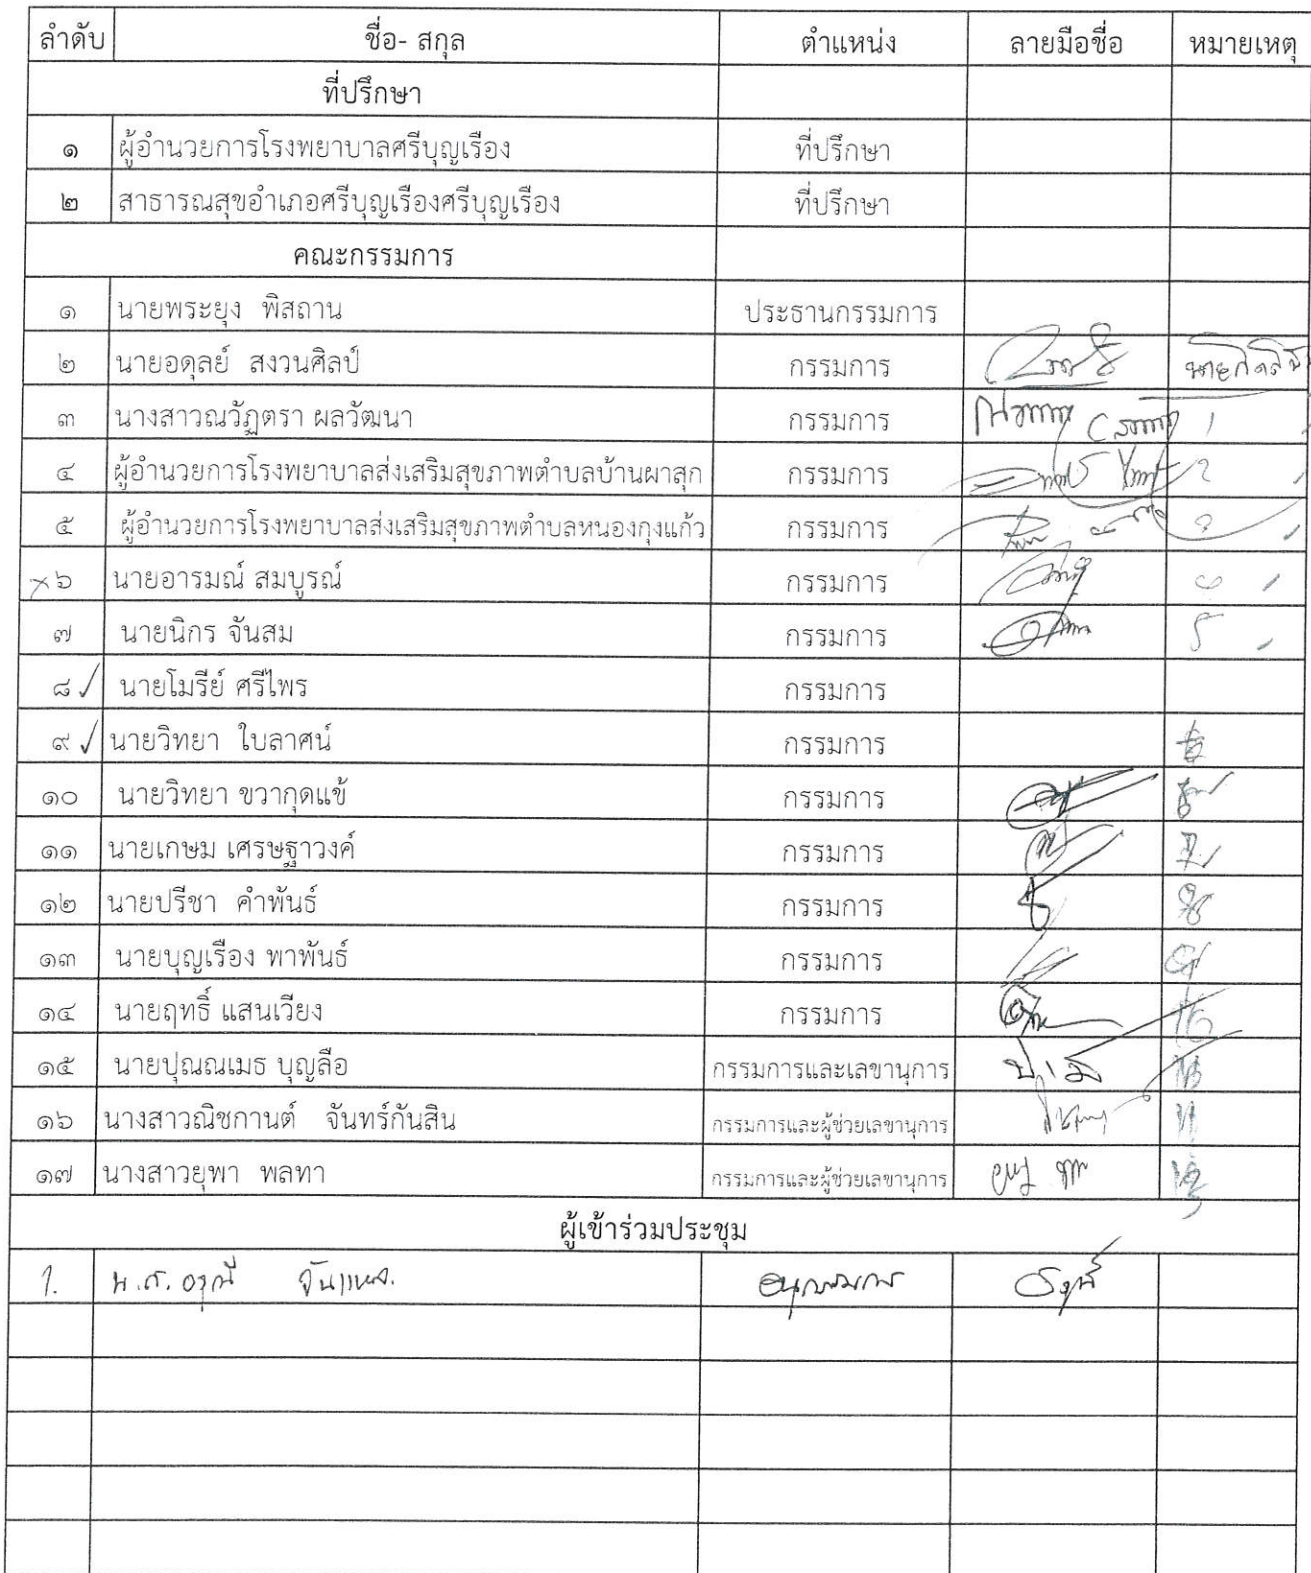 ลำดับ ชื่อ- สกุล ตำแหน่ง ลายมือชื่อ หมายเหตุ
ที่ปรึกษา
๑ ผู้อำนวยการโรงพยาบาลศรีบุญเรือง ที่ปรึกษา
๒ สาธารณสุขอำเภอศรีบุญเรืองศรีบุญเรือง ที่ปรึกษา
คณะกรรมการ
๑ นายพระยุง พิสถาน ประธานกรรมการ
๒ นายอดุลย์ สงวนศิลป์ กรรมการ
๓ นางสาวณวัฏตรา ผลวัฒนา กรรมการ
๔ ผู้อำนวยการโรงพยาบาลส่งเสริมสุขภาพตำบลบ้านผาสุก กรรมการ
๕ ผู้อำนวยการโรงพยาบาลส่งเสริมสุขภาพตำบลหนองกุงแก้ว กรรมการ
๖ นายอารมณ์ สมบูรณ์ กรรมการ
๗ นายนิกร จันสม กรรมการ
๘ นายโมรีย์ ศรีไพร กรรมการ
๙ นายวิทยา ใบลาศน์ กรรมการ
๑๐ นายวิทยา ขวากุดแข้ กรรมการ
๑๑ นายเกษม เศรษฐาวงค์ กรรมการ
๑๒ นายปรีชา คำพันธ์ กรรมการ
๑๓ นายบุญเรือง พาพันธ์ กรรมการ
๑๔ นายฤทธิ์ แสนเวียง กรรมการ
๑๕ นายปุณณเมธ บุญลือ กรรมการและเลขานุการ
๑๖ นางสาวณิชกานต์ จันทร์กันสิน กรรมการและผู้ช่วยเลขานุการ
๑๗ นางสาวยุพา พลทา กรรมการและผู้ช่วยเลขานุการ
ผู้เข้าร่วมประชุม
1. น.ส. อรุณี